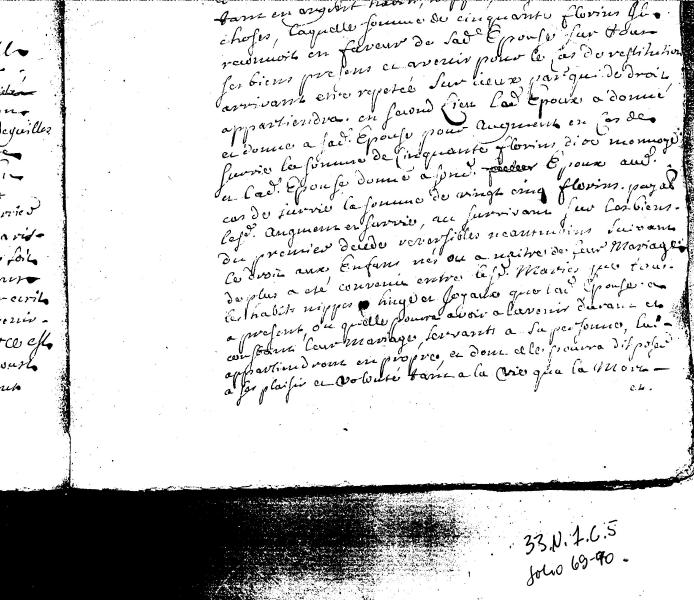 tant en argent habits,
choses, laquelle somme de cinquante florins Il
reconnoit en faveur de sade Epouse sur tous
ses biens presens et avenir pour le Cas de restitution
arrivant etre repetée sur iceux par qui de droit
appartiendra. en second Lieu led Epoux a donné
et donne a sad. Epouse pour Augment en Cas de
survie la somme de Cinquante florins, di ce monnoye
et lad. Epouse donne a sond. Epoux aud.
cas de survie la somme de vingt cinq florins. payab
lesd. Augment et survie, au survivant sur les biens.
du premier decedé reversibles neantmoins suivant
le droit aux Enfans nés ou a naitre de leur Mariage
de plus a eté convenu entre lesd. Mariés que tous
les habits nippes linge et Joyaux que lad Epouse a
a present, ou qu'elle pourra avoir a l'avenir durant et
constant leur mariage, servants a sa personne, lui
appartiendront en propre, et dont elle pourra disposer
a ses plaisir et volonté tant a la vie que la Mort
et.
rce est
33.N.1.C.5
folio 69-70.